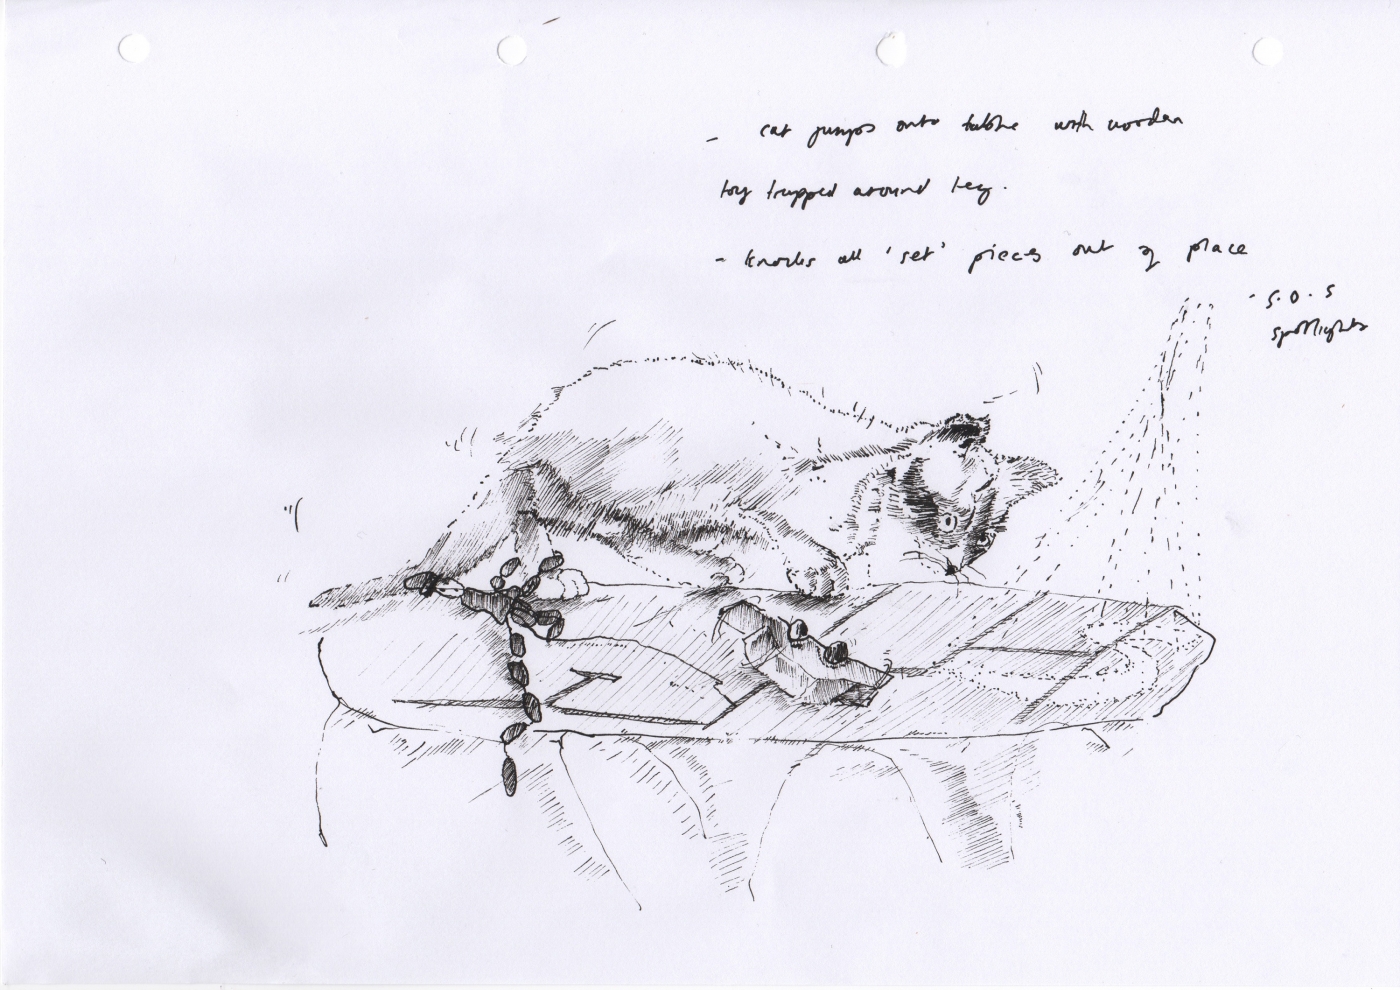 - cat jumps onto table with wooden
toy trapped around leg.
- knocks all 'set' pieces out of place
- S.O.S
spotlights